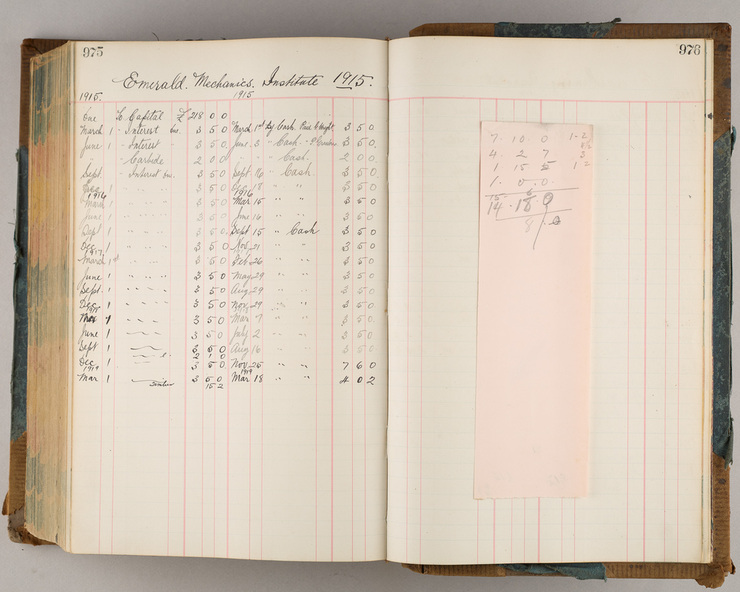 975
Emerald. Mechanics. Institute 1915.
1915. 1915
To Capital £ 218 0 0
March 1 " Interest 3 5 0 March 1st By Cash 3 5 0
June 1 " Interest " 3 5 0 June 3 " Cash 3 5 0
" Carbide 2 0 0 " " Cash 2 0 0
Sept. 1 " Interest 3 5 0 Sept 16 " Cash 3 5 0
Dec 1 " " " 3 5 0 18 " " 3 5 0
1916 1916
March 1 " " " 3 5 0 Mar 15 " " 3 5 0
June 1 " " " 3 5 0 June 16 " " 3 5 0
Sept 1 " " " 3 5 0 Sept 15 " Cash 3 5 0
Dec 1 " " " 3 5 0 Nov 21 " " 3 5 0
1917
March 1st " " " 3 5 0 Feb 26 " " 3 5 0
June 1 " " " 3 5 0 May 29 " " 3 5 0
Sept. 1 " " " 3 5 0 Aug 29 " " 3 5 0
Dec 1 " " " 3 5 0 Nov 29 " " 3 5 0
1918
1 3 5 0 Mar 7 " " 3 5 0
June 1 3 5 0 July 2 " " 3 5 0
Sept 1 3 5 0 Aug 16 " " 3 5 0
Dec 1 3 5 0 Nov 25 " " 7 6 0
1919 1919
Mar 1 3 5 0 Mar 18 " " 4 0 2
15 2
976
7. 10. 0
4. 2 7
1 15 2
1. 0. 0.